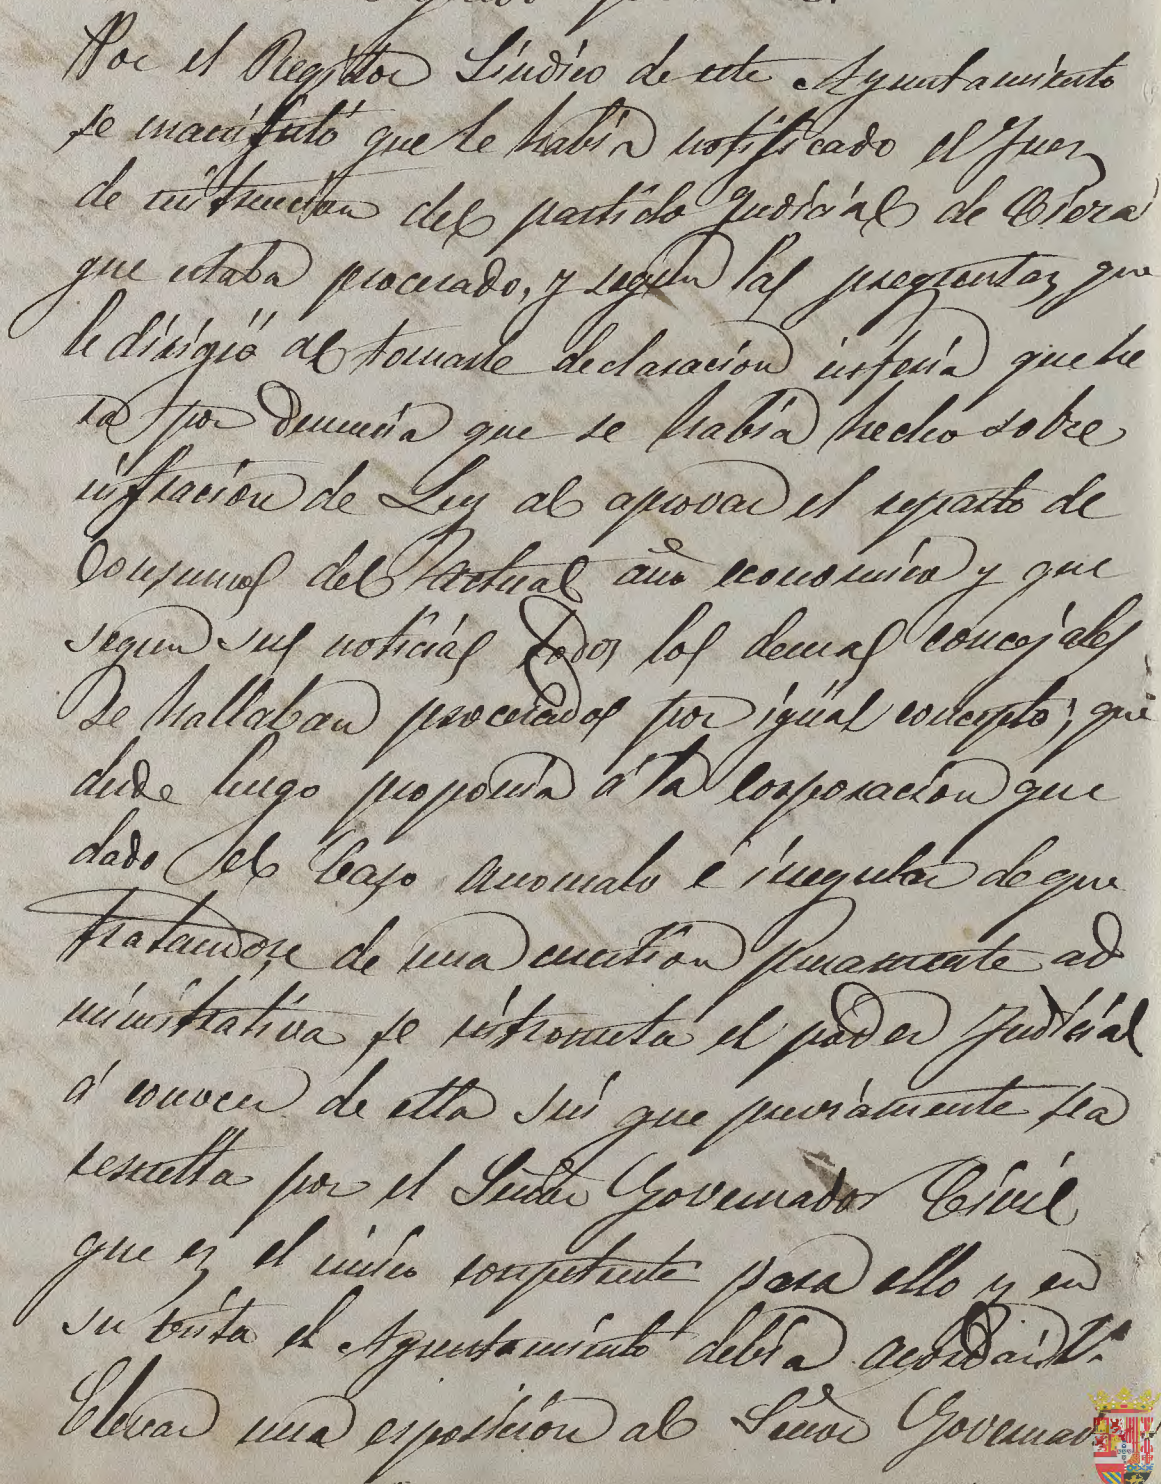 Por el Regidor Sindico de este Ayuntamiento
se manifestó que le habia notificado el Juez
de instrucion del partido Judicial de Cieza
que estaba procesado, y segun las preguntas que
le dirigió al tomarle declaracion inferia que he
ra por denuncia que se habia hecho sobre
infracion de Ley al aprovar el reparto de
Consumos del actual año economico y que
segun sus noticias todos los demas concejales
se hallaban procesados por igual concepto; que
desde luego proponia á la corporacion que
dado el caso anomalo é irregular de que
tratandose de una cuestion puramente ad
ministrativa se intrometa el poder Judicial
á conocer de ella sin que previamente sea
resuelta por el Señor Governador Civil
que es el unico conpetente para ello y en
su vista el Ayuntamiento debia acordar 1º
Elevar una exposicion al Señor Governad